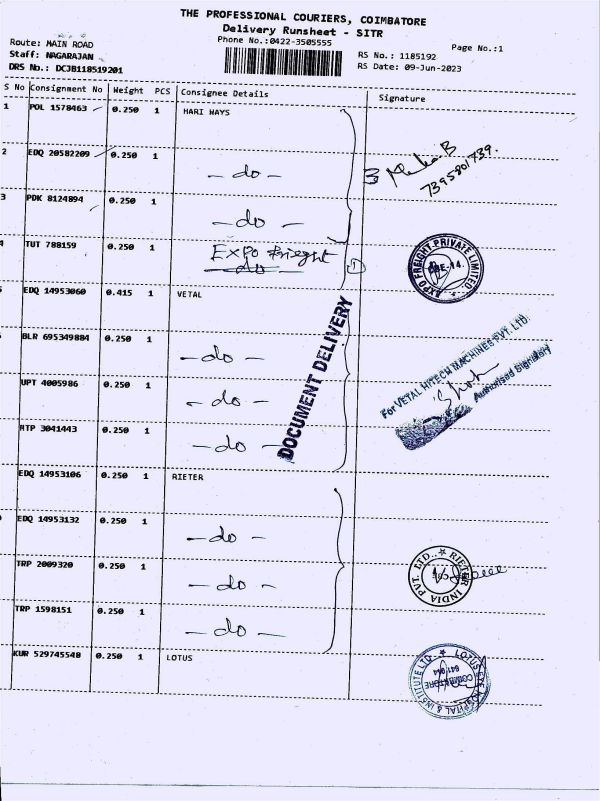 THE PROFESSIONAL COURIERS, COIMBATORE
Delivery Runsheet - SITR
Phone No.:0422-3505555
Page No.:1
Route: MAIN ROAD
Staff: NAGARAJAN
DRS No.: DCJB118519201
RS No.: 1185192
RS Date: 09-Jun-2023
S No Consignment No Weight PCS Consignee Details Signature
1 POL 1578463 0.250 1 HARI WAYS
2 EDQ 20582209 0.250 1 - do -
3 B
7395801739.
3 PDK 8124894 0.250 1 - do -
4 TUT 788159 0.250 1 Expo frieght
do
1
EXPO FREIGHT PRIVATE LIMITED.
CBE-14.
EDQ 14953060 0.415 1 VETAL
DOCUMENT DELIVERY
BLR 695349884 0.250 1 - do -
For VETAL HITECH MACHINES PVT. LTD.
Authorised Signatory
UPT 4005986 0.250 1 - do -
RTP 3041443 0.250 1 - do -
EDQ 14953106 0.250 1 RIETER
EDQ 14953132 0.250 1 - do -
TRP 2009320 0.250 1 - do -
RIETER INDIA PVT. LTD.
TRP 1598151 0.250 1 - do -
KUR 529745548 0.250 1 LOTUS
LOTUS EYE HOSPITAL & INSTITUTE LTD.
COIMBATORE